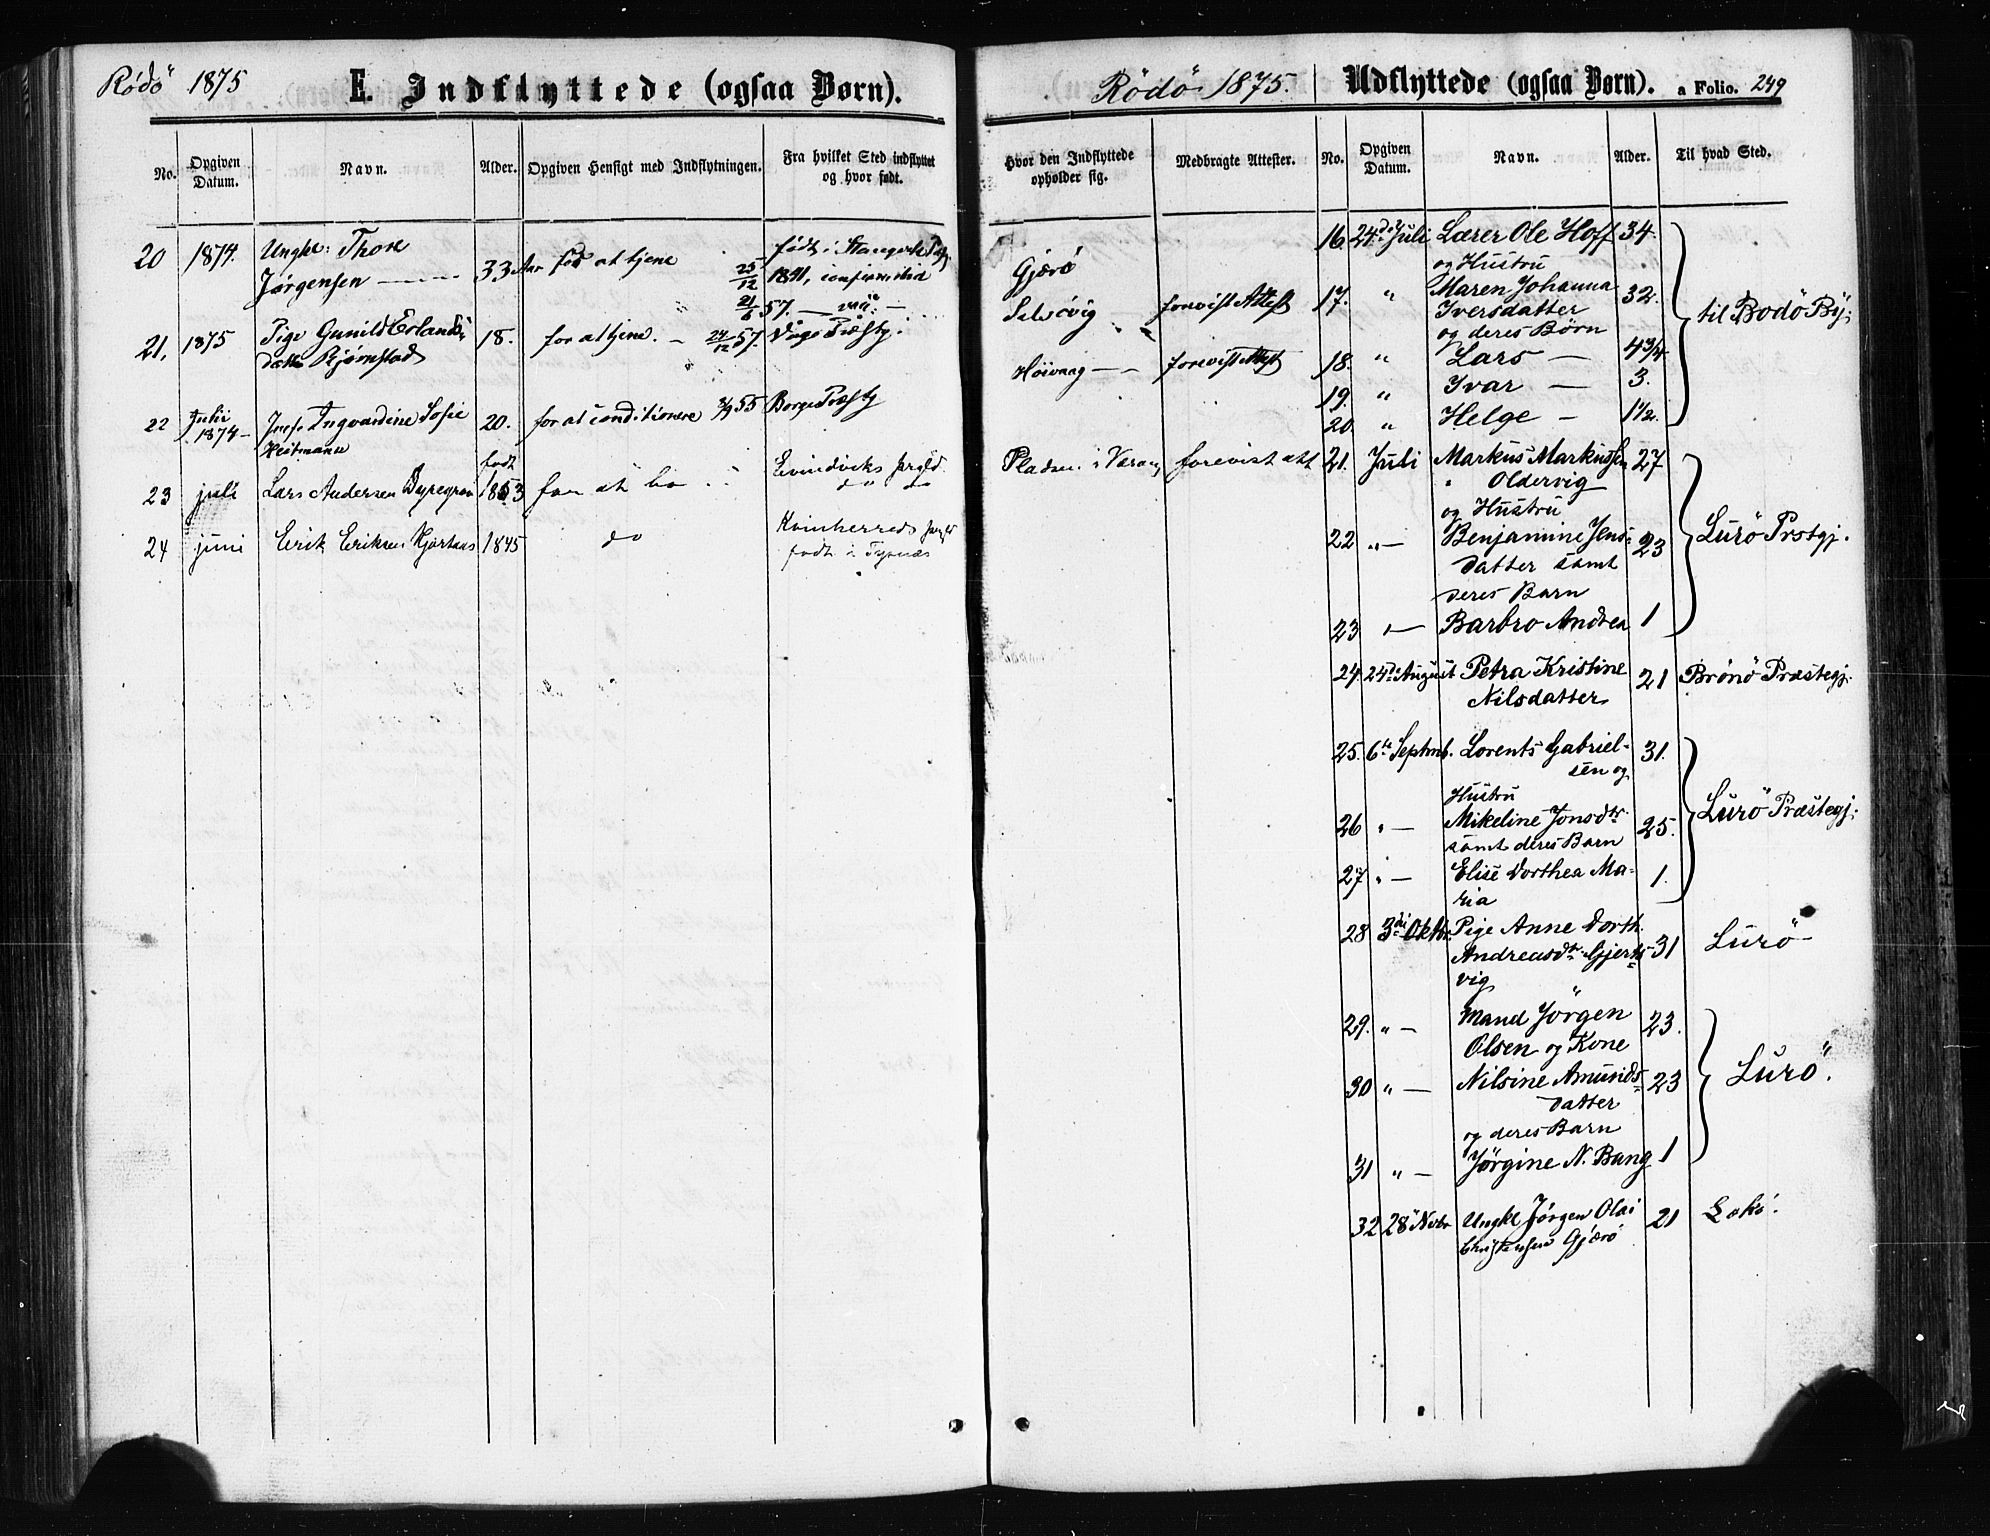 Rödö 1875
E. Indflyttede (ogsaa Børn).
No.
Opgiven Datum.
Navn.
Alder.
Opgiven Hensigt med Indflytningen.
Fra hvilket Sted indflyttet og hvor født.
20 1874. Ungkl: Thore
Jørgensen 33 Aar for at tjene
født i
25/12 1841, confirmered
21/6 57.
21, 1875 Pige Gunild Erlands-
datter Bjørnstad 18. for at tjene. 24/12 57. Præstgj.
22 Julii 1874 Jnf. Ingvardine Sofie
Heitmann 20. for at conditionere 3/9 55 Borge Præstgj
23 juli Lars Andersen Dyregrov født 1853 for at bo Evindviks prgld.
do do
24 juni Erik Eriksen 1845 do Kvinherreds prgld
født i Tysnæs
Rödö 1875.
Udflyttede (ogsaa Børn). a Folio. 249
Hvor den Indflyttede opholder sig.
Medbragte Attester.
No.
Opgiven Datum.
Navn.
Alder.
Til hvad Sted.
Gjærö
Selsövig forevist Attest
Höivaag forevist Attest
Pladsen i forevist att
16 24de Juli Lærer Ole Hoff 34.
og Hustru
17. " Maren Johanna 32.
Iversdatter
og deres Børn
til Bodö By;
18. " Lars — 4 3/4
19. " Ivar — 3.
20. " Helge — 1 1/2.
21. Juli Markus Markussen 27
" Oldervig
og Hustru
22 "— Benjamine Jens- 23
datter samt
deres Barn
Lurö Prstgj.
23 "— Barbro Andrea 1
24 24de August Petra Kristine 21 Brönö Præstegj.
Nilsdatter
25. 6te Septmb. Lorents Gabriel- 31.
sen og
Hustru
26 "— Mikeline Jonsdtr 25.
samt deres Barn
Lurö Præstegj;
27 "— Elise Dorthea Ma- 1.
ria
28 3di Oktbr. Pige Anne Dorth.
Andreasdtr Gjerts- 31 Lurö
vig
29. " — Mand Jörgen 23.
Olsen og Kone
30 " — Nilsine Amunds- 23
datter
og deres Barn
Lurö.
31 " — Jörgine N. Bang 1
32 28 Novbr Ungkl Jörgen Olai 21
Christensen Gjærö